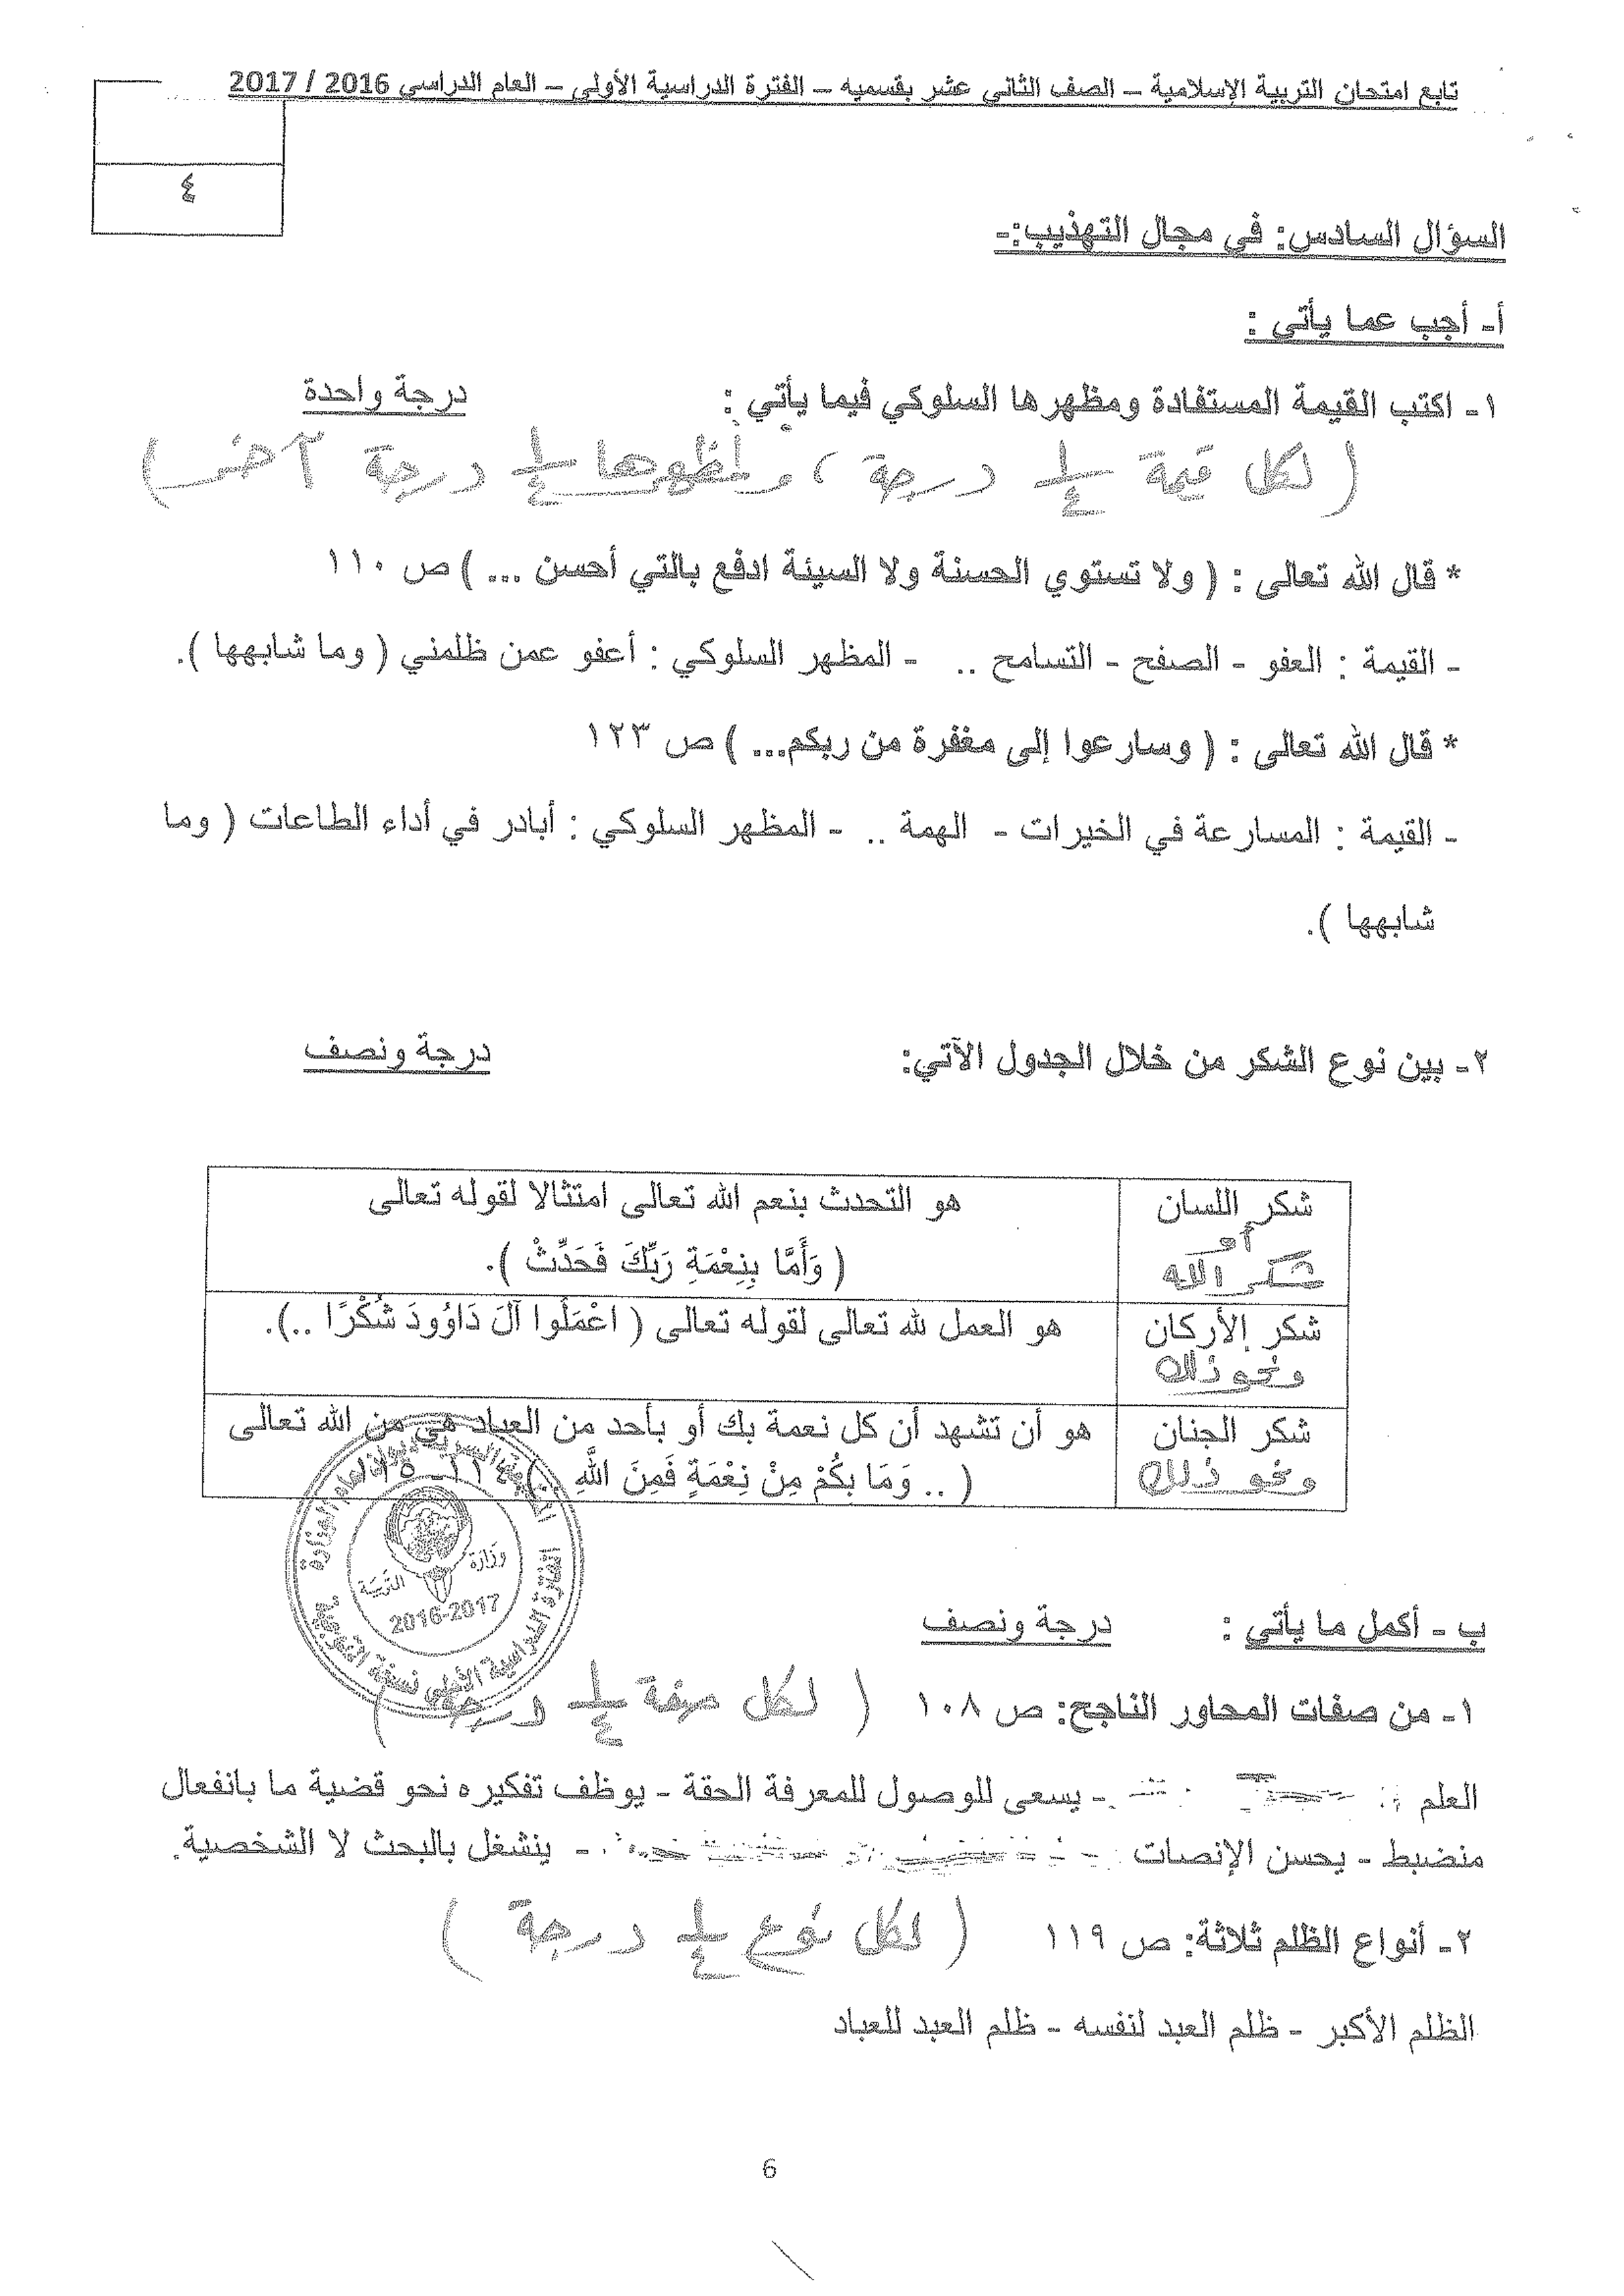 تابع امتحان التربية الإسلامية – الصف الثاني عشر بقسميه – الفترة الدراسية الأولى – العام الدراسي 2016 / 2017
٤
السؤال السادس: في مجال التهذيب:-
أ- أجب عما يأتي :
١- اكتب القيمة المستفادة ومظهرها السلوكي فيما يأتي : درجة واحدة
( لكل قيمة ١/٤ درجة ، ولمظهرها ١/٤ درجة )
* قال الله تعالى : ( ولا تستوي الحسنة ولا السيئة ادفع بالتي أحسن ... ) ص ١١٠
- القيمة : العفو - الصفح - التسامح .. - المظهر السلوكي : أعفو عمن ظلمني ( وما شابهها ).
* قال الله تعالى : ( وسارعوا إلى مغفرة من ربكم... ) ص ١٢٣
- القيمة : المسارعة في الخيرات - الهمة .. - المظهر السلوكي : أبادر في أداء الطاعات ( وما
شابهها ).
٢- بين نوع الشكر من خلال الجدول الآتي: درجة ونصف
شكر اللسان هو التحدث بنعم الله تعالى امتثالا لقوله تعالى
أو
شكر الله ( وَأَمَّا بِنِعْمَةِ رَبِّكَ فَحَدِّثْ ).
شكر الأركان هو العمل لله تعالى لقوله تعالى ( اعْمَلُوا آلَ دَاوُودَ شُكْرًا ..).
ونحو ذلك
شكر الجنان هو أن تشهد أن كل نعمة بك أو بأحد من العباد هي من الله تعالى
ونحو ذلك ( .. وَمَا بِكُمْ مِنْ نِعْمَةٍ فَمِنَ اللَّهِ ..) ١١٤-١١٥
وزارة التربية
2016-2017
الفترة الدراسية الأولى
ب - أكمل ما يأتي : درجة ونصف
١- من صفات المحاور الناجح: ص ١٠٨ ( لكل صفة ١/٤ درجة )
العلم - يسعى للوصول للمعرفة الحقة - يوظف تفكيره نحو قضية ما بانفعال
منضبط - يحسن الإنصات - ينشغل بالبحث لا الشخصية.
٢- أنواع الظلم ثلاثة: ص ١١٩ ( لكل نوع ١/٤ درجة )
الظلم الأكبر - ظلم العبد لنفسه - ظلم العبد للعباد
6